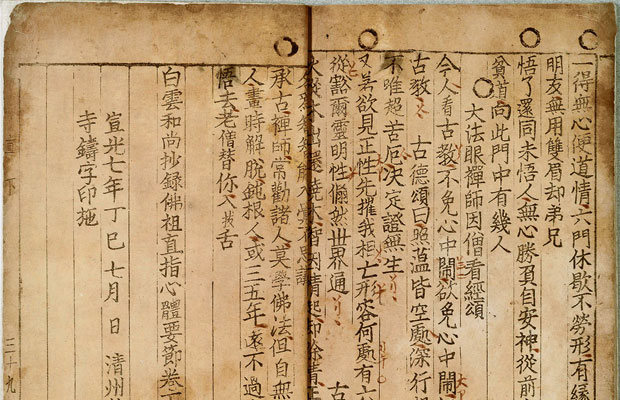 一得無心便道情六門休歇不勞形有緣
朋友無用雙眉却弟兄
悟了還同未悟人無心勝負自安神從前
貧道向此門中有幾人
大法眼禪師因僧看經頌
今人看古教不免心中鬧欲免心中鬧
古教 古德頌曰照蘊皆空處深行
不唯超苦厄決定證無生
又若欲見正性先摧我相亡形容何處有六
從豁爾靈明性儵然世界通 古
還燒木智因情起却除情
承古禪師常勸諸人莫學佛法但自無
人晝時解脫鈍根人或三五年遠不過
悟去老僧替你入拔舌
白雲和尚抄錄佛祖直指心體要節卷下
宣光七年丁巳七月 日 清州
寺鑄字印施
直下
三十九